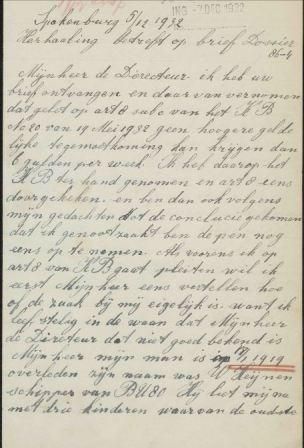 ING - 7 DEC 1932
Spakenburg 5/12 1932
Herhaaling betreft op brief Dossier
86-4
Mijnheer de Directeur ik heb uw
brief ontvangen en daar van vernomen
dat gelet op art 8 sub c van het K B
No 20 van 19 Mei 1932 geen hoogere gelde
lijke tegemoetkoming kan krijgen dan
6 gulden per week. Ik heb daarop het
K B ter hand genomen en art 8 eens
doorgekeken en ben dan ook volgens
mijn gedachten tot de conclucie gekomen
dat ik genootzaakt ben de pen nog
eens op te nemen. Als vorens ik op
art 8 van K B gaat pleiten wil ik
eerst Mijnheer eens vertellen hoe
of de zaak bij mij eigelijk is. want ik
leef stelig in de waan dat Mijnheer
de Direteur dat niet goed bekend is
Mijnheer mijn man is 1919
overleden zijn naam was W Heijnen
schipper van BU 80 Hij liet mij na
met drie kinderen waarvan de oudste